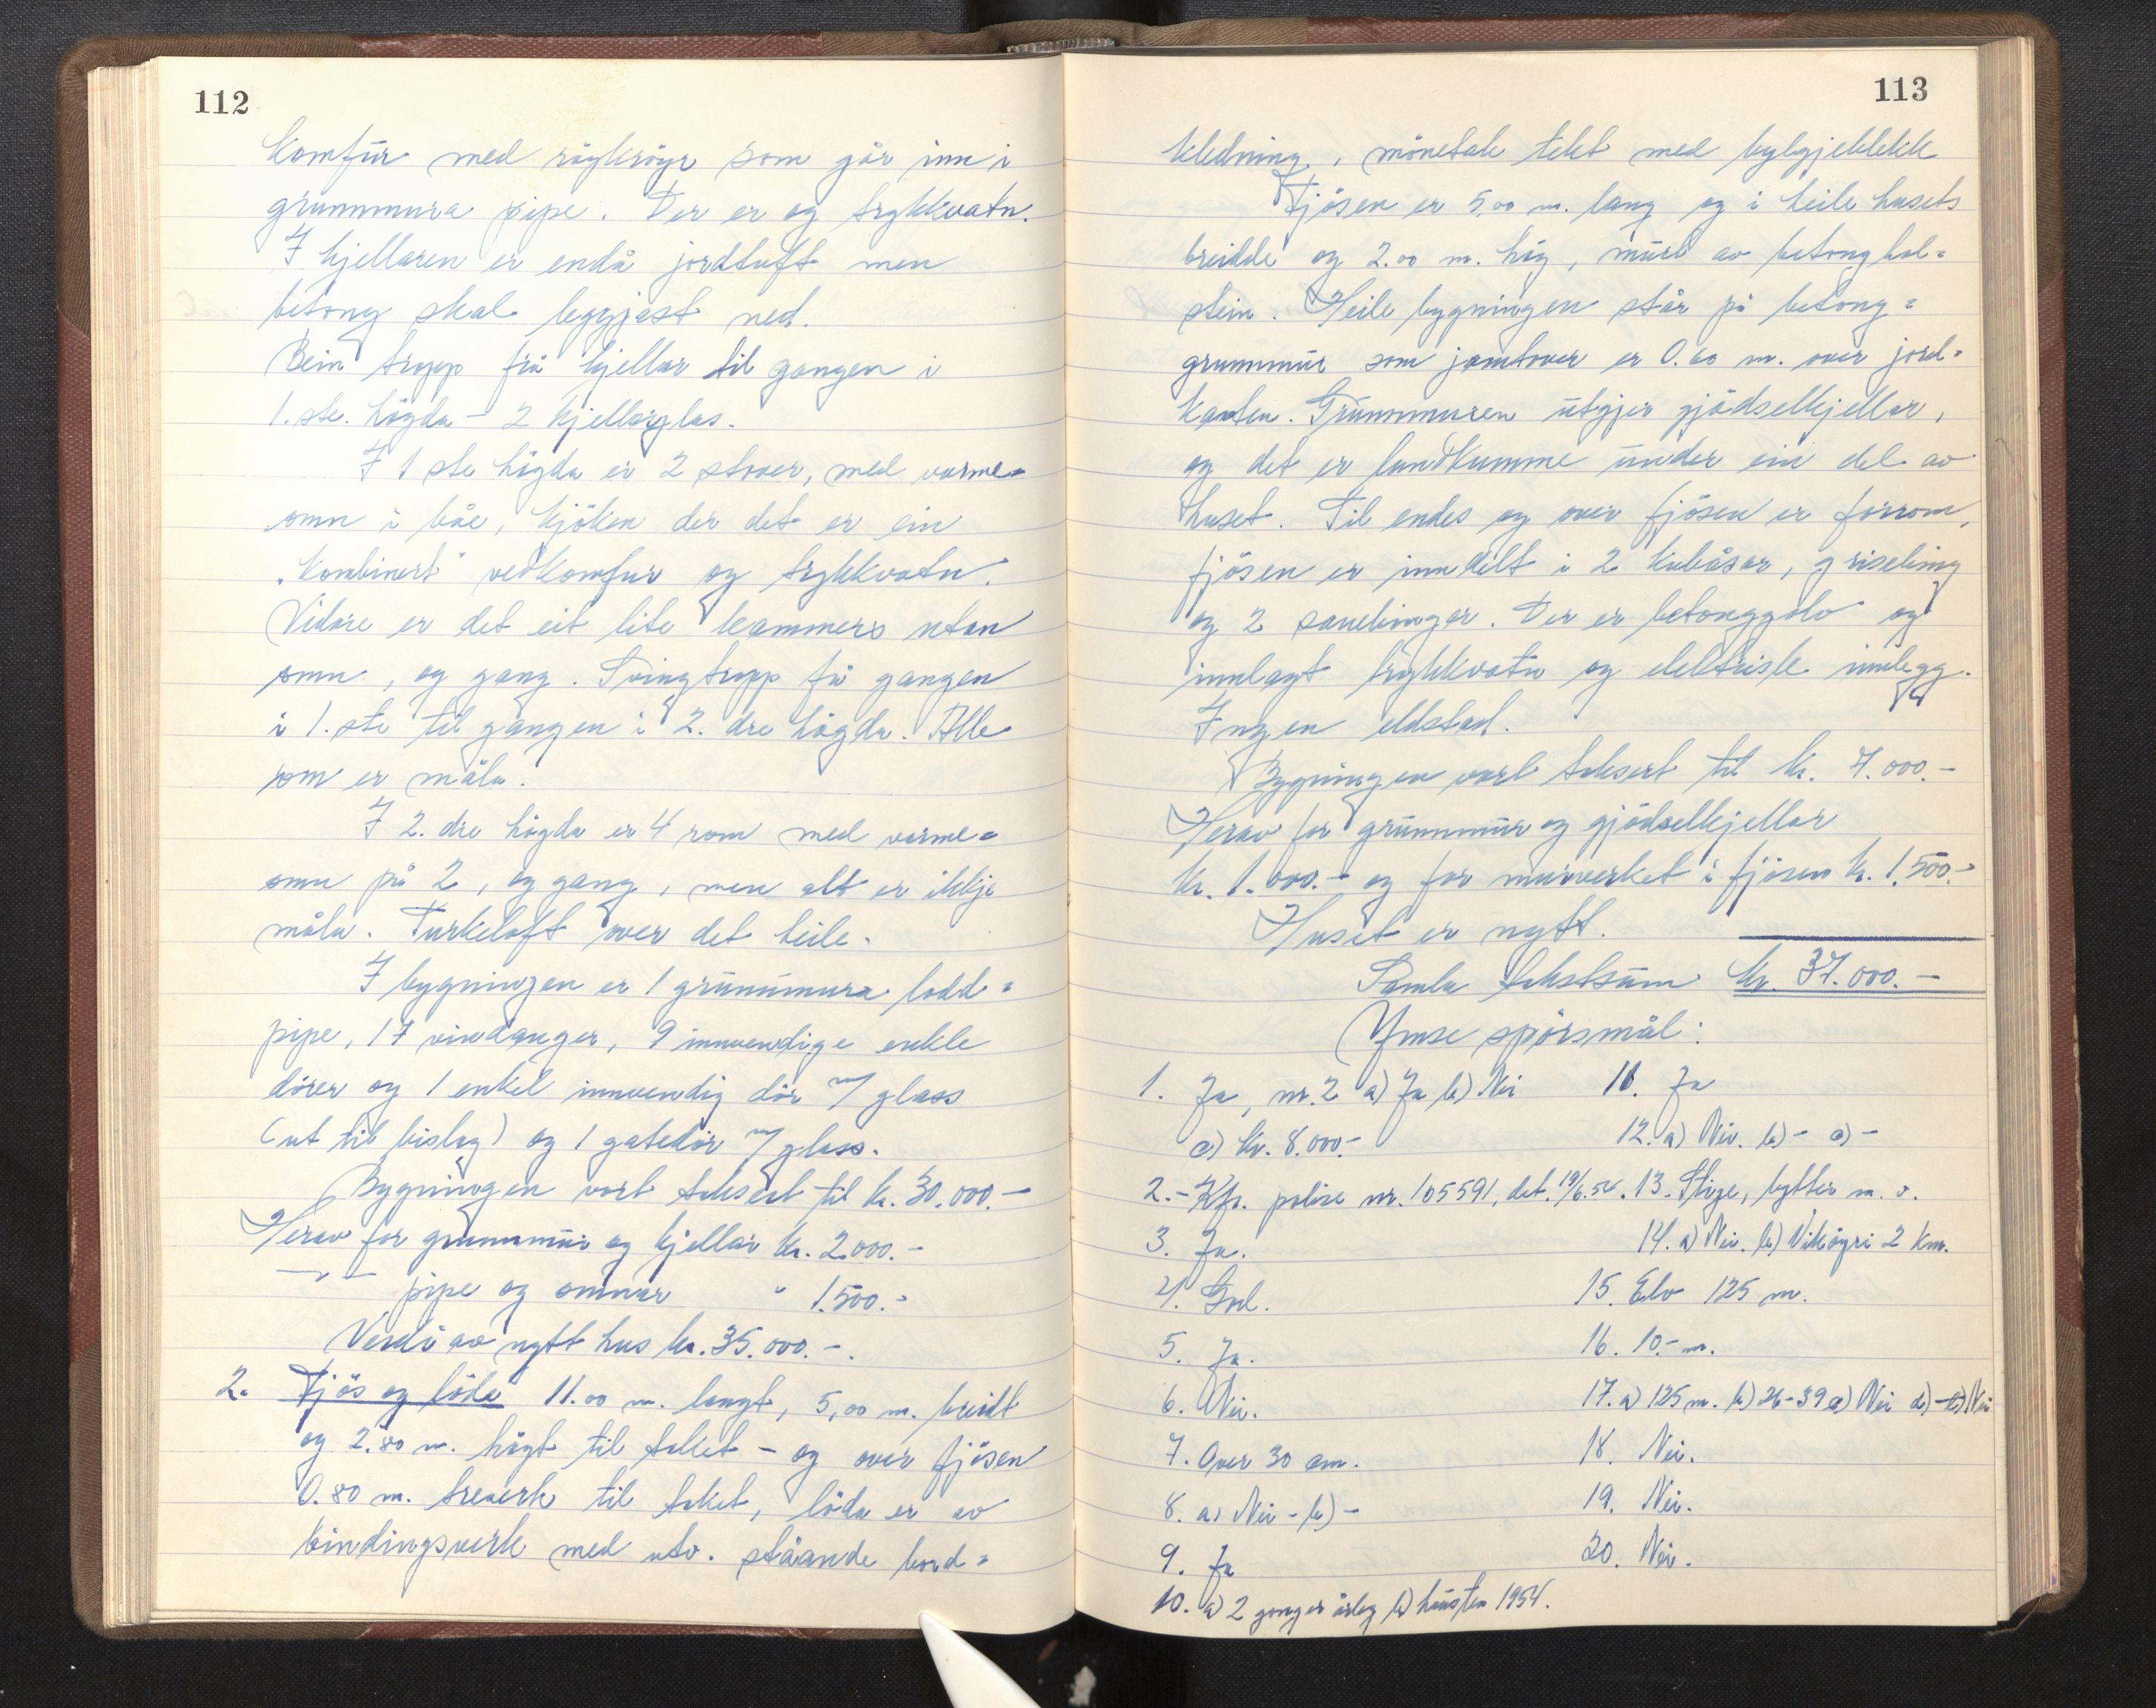 112
komfur med røykrøyr som går inn i
grunnmura pipe. Der er og trykkvatn.
I kjellaren er endå jordtuft men
betong skal leggjast ned.
Bein tropp frå kjellar til gangen i
1.ste. høgda – 2 kjellarglas.
I 1 ste høgda er 2 stover, med varme=
omn i båe, kjøken der det er ein
„kombinert" vedkomfur og trykkvatn.
Vidare er det eit lite kammers utan
omn, og gang. Svingtropp frå gangen
i 1.ste til gangen i 2. dre høgda. Alle
rom er måla.
I 2. dre høgda er 4 rom med varme=
omn på 2, og gang, men alt er ikkje
måla. Turkeloft over det heile.
I bygningen er 1 grunnmura lodd=
pipe, 17 vindauger, 9 innvendige enkle
dører og 1 enkel innvendig dør m/ glass
(ut til bislag) og 1 gatedør m/ glass.
Bygningen vart taksert til kr. 30.000.–
Herav for grunnmur og kjellar kr. 2.000.–
—„— pipe og omnar " 1.500.–
Verdi av nytt hus kr. 35.000.–.
2. Fjøs og løda 11.00 m. langt, 5,00 m. breidt
og 2.80 m. høgt til taket – og over fjøsen
0.80 m. treverk til taket, løda er av
bindingsverk med utv. ståande bord=
113
kledning, mønetak tekt med bylgjeblekk
Fjøsen er 5,00 m. lang og i heile husets
breidde og 2.00 m. høg, murt av betonghol=
stein. Heile bygningen står på betong=
grunnmur som jamtover er 0.60 m. over jord=
kanten. Grunnmuren utgjer gjødselkjellar,
og det er landkumme under ein del av
huset. Til endes og over fjøsen er forrom,
fjøsen er inndelt i 2 kubåsar, grisebing
og 2 sauebingar. Der er betonggolv og
innlagt trykkvatn og elektrisk innlegg.
Ingen eldstad.
Bygningen vart taksert til kr. 7.000.–
Herav for grunnmur og gjødselkjellar
kr. 1.000.– og for murverket i fjøsen kr. 1.500.–
Huset er nytt.
Samla takstsum kr. 37.000.–
Ymse spørsmål:
1. Ja, nr. 2 a) Ja b) Nei
c) kr. 8.000.–
2.– Kfr. polise nr. 105591, dat. 19/6.54.
3. Ja.
4. God.
5. Ja.
6. Nei.
7. Over 30 cm.
8. a) Nei – b) –
9. Ja
10. a) 2 gonger årleg b) hausten 1954.
11. Ja
12. a) Nei. b) – c) –
13. Stige, bytter m. v.
14. a) Nei. b) Vikøyri 2 km.
15. Elv 125 m.
16. 10.– m.
17. a) 125 m. b) 26–39 c) Nei d) – e) Nei
18. Nei.
19. Nei.
20. Nei.